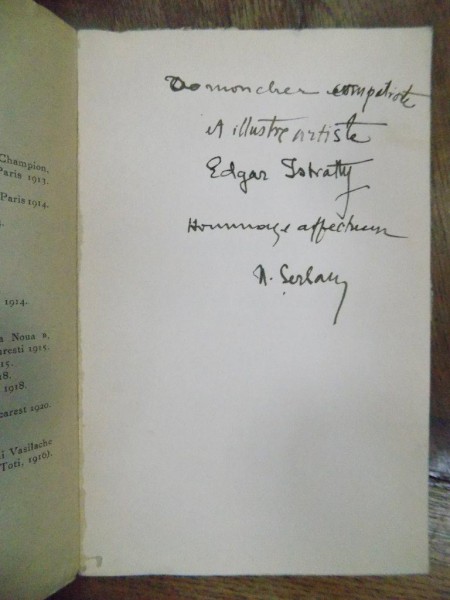 Champion,
Paris 1913.
Paris 1914.
1914.
Noua »,
1915.
15.
18.
1918.
1920.
Vasilache
Toti, 1916).
A mon cher compatriote
et illustre artiste
Edgar Istratty
Hommage affectueux
N. Serban